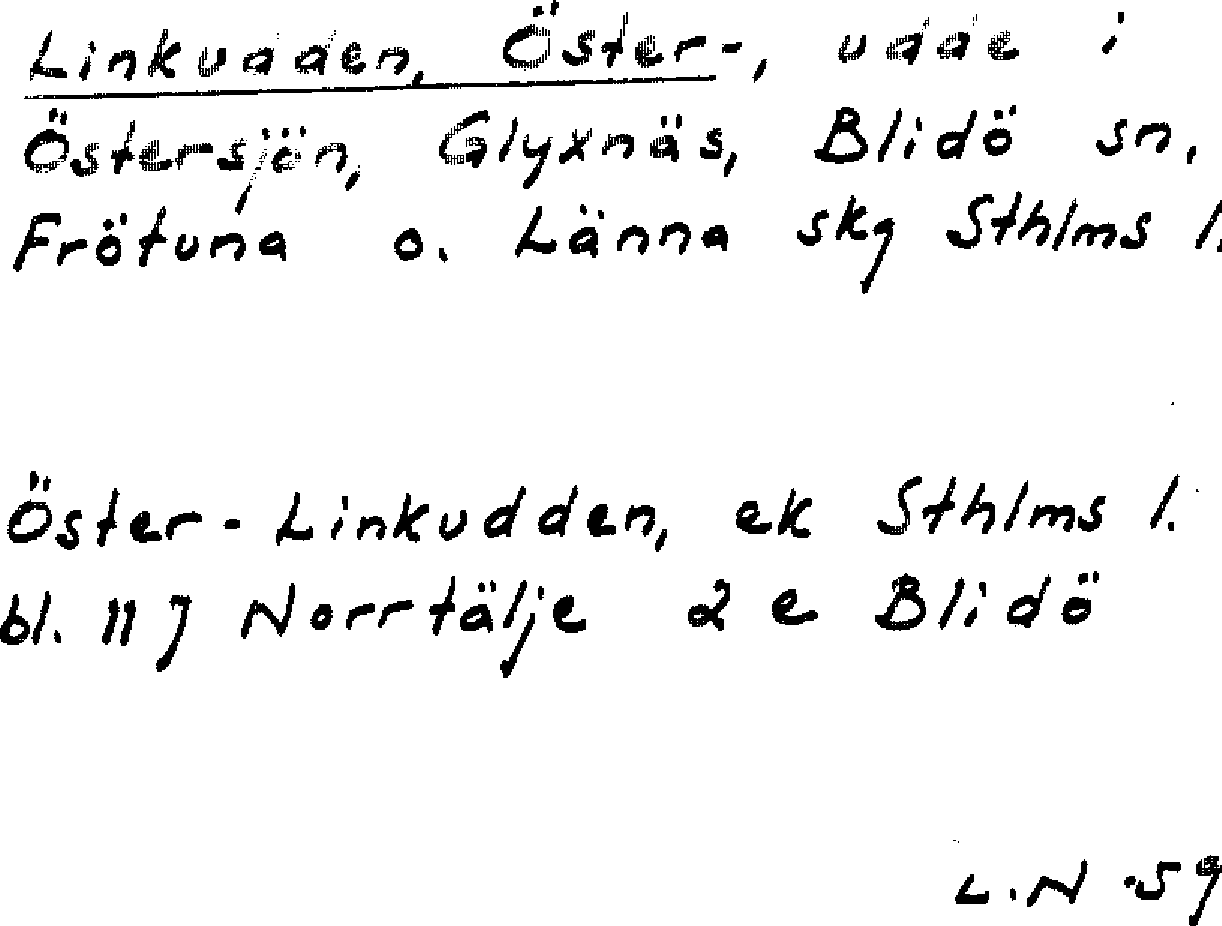 Linkudden, Öster-, udde i
Östersjön, Glyxnäs, Blidö sn,
Frötuna o. Länna skg Sthlms l.
Öster-Linkudden, ek Sthlms l.
bl. 11 J Norrtälje 2 e Blidö
L.N -59